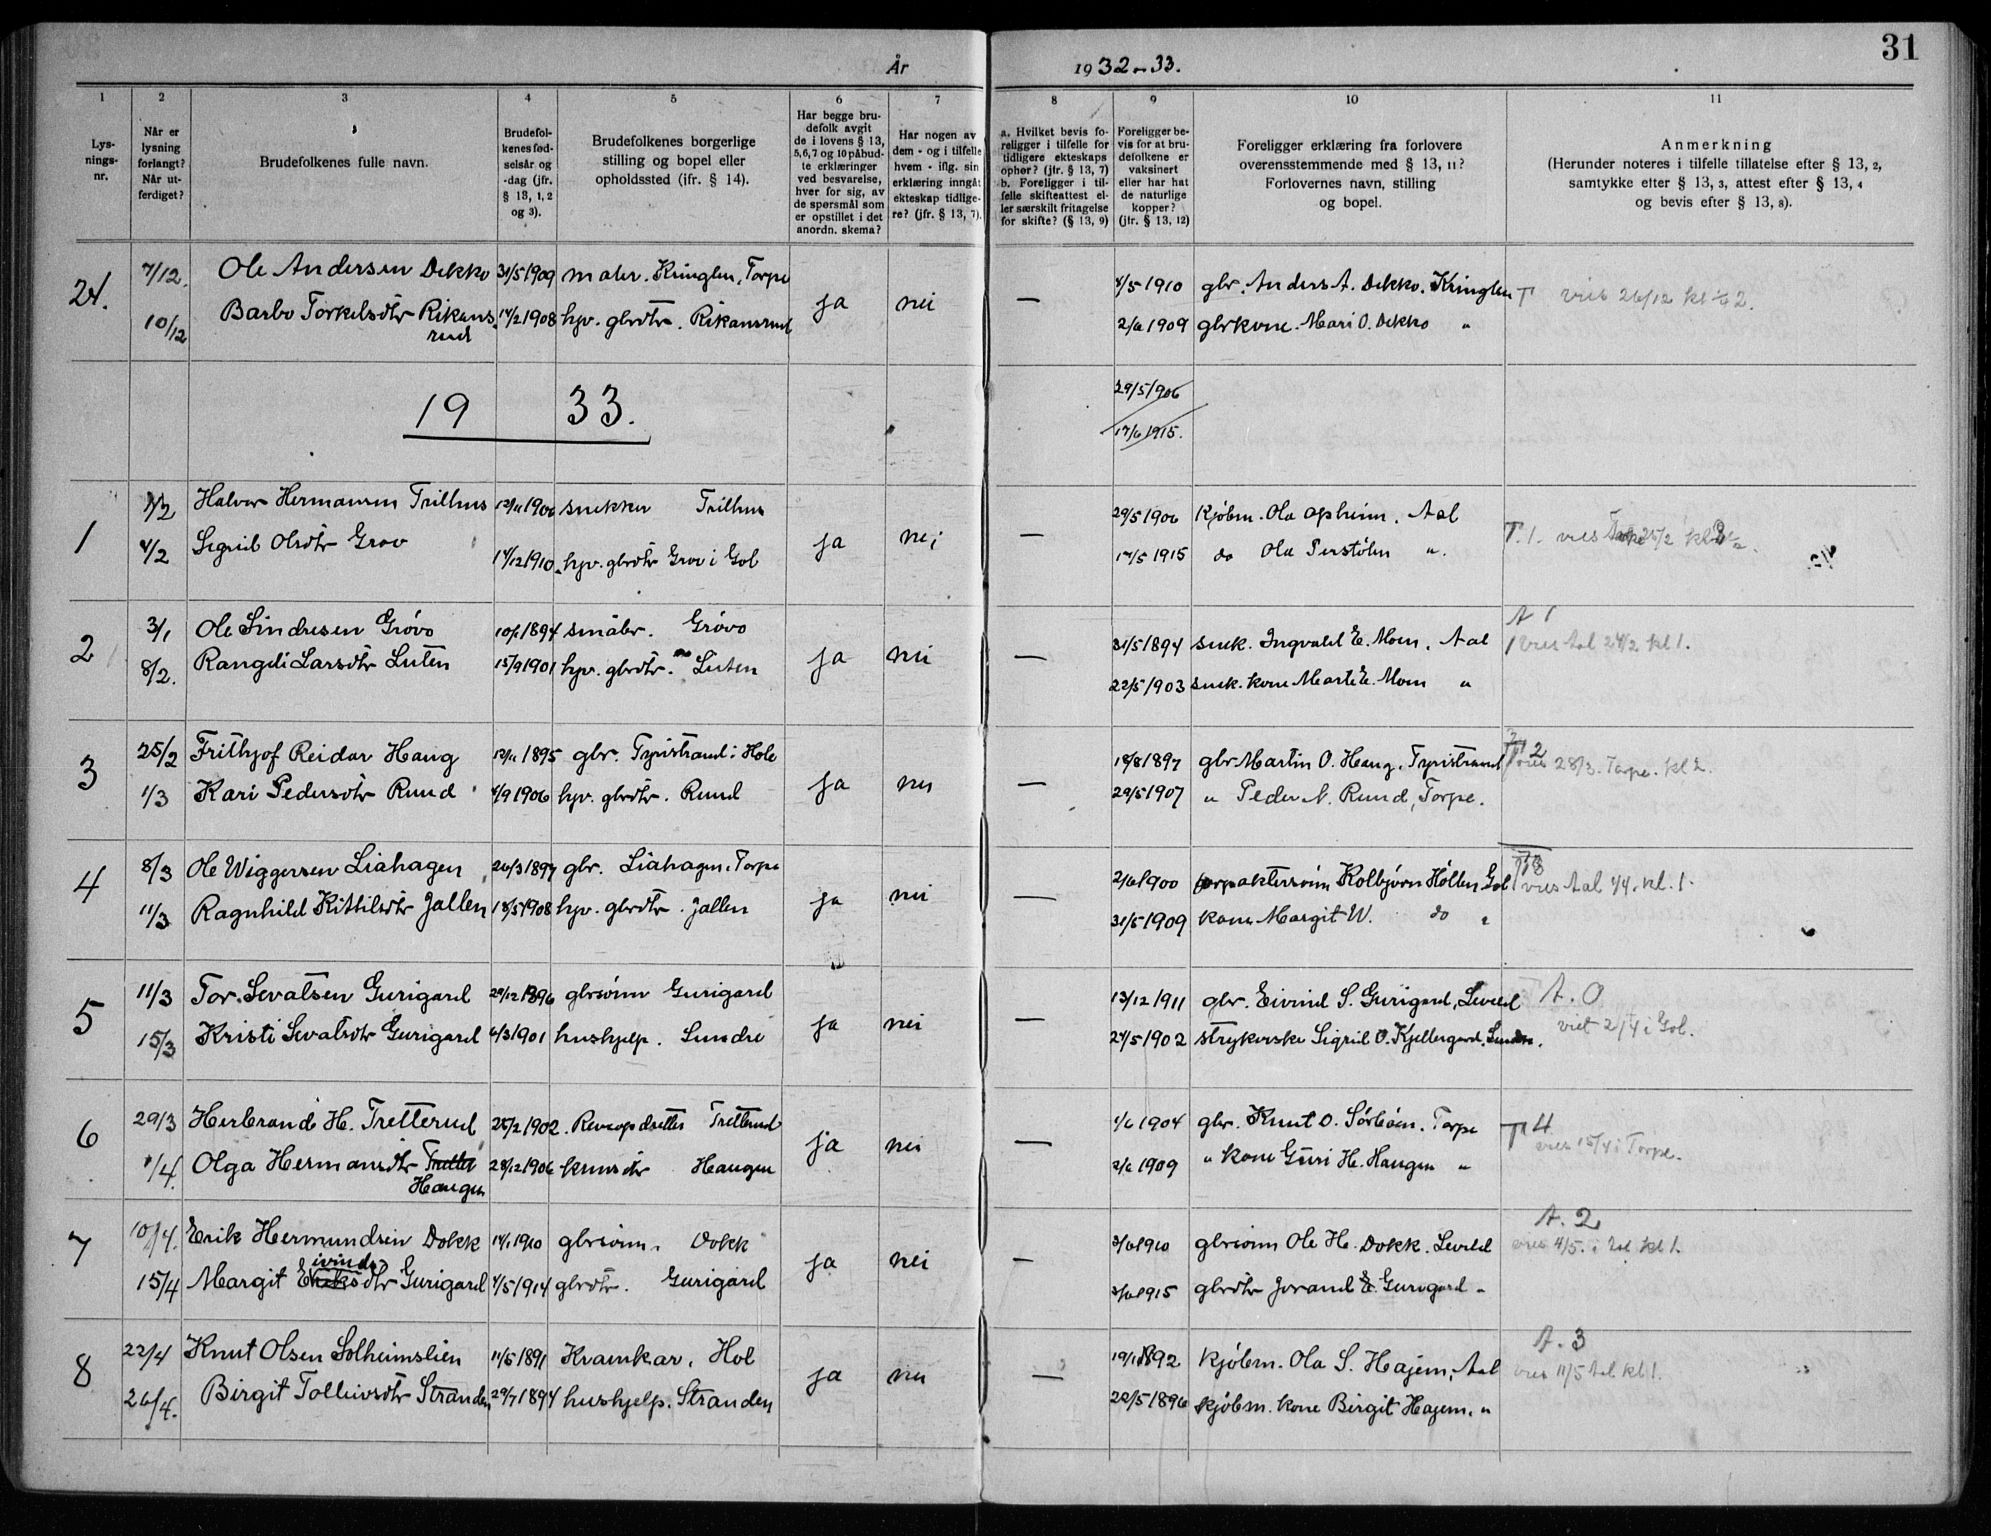 31
År 1932-33.
1 2 3 4 5 6 7 8 9 10 11
Lysningsnr.
Når er lysning forlangt? Når utferdiget?
Brudefolkenes fulle navn.
Brudefolkenes fødselsår og -dag (jfr. § 13, 1, 2 og 3).
Brudefolkenes borgerlige stilling og bopel eller opholdssted (jfr. § 14).
Har begge brudefolk avgit de i lovens § 13, 5, 6, 7 og 10 påbudte erklæringer ved besvarelse, hver for sig, av de spørsmål som er opstillet i det anordn. skema?
Har nogen av dem - og i tilfelle hvem - iflg. sin erklæring inngåt ekteskap tidligere? (jfr. § 13, 7).
a. Hvilket bevis foreligger i tilfelle for tidligere ekteskaps ophør? (jfr. § 13, 7) b. Foreligger i tilfelle skifteattest eller særskilt fritagelse for skifte? (§ 13, 9)
Foreligger bevis for at brudefolkene er vaksinert eller har hat de naturlige kopper? (jfr. § 13, 12)
Foreligger erklæring fra forlovere overensstemmende med § 13, 11? Forlovernes navn, stilling og bopel.
Anmerkning (Herunder noteres i tilfelle tillatelse efter § 13, 2, samtykke efter § 13, 3, attest efter § 13, 4 og bevis efter § 13, 8).
24. 7/12. Ole Andersen Dekko 31/5 1909 maler. Kringlen, Torpe ja nei — 4/5 1910 gbr. Anders A. Dekko. Kringlen T vies 26/12 kl 2.
10/12 Barbo Torkelsdtr Rikansrud 14/2 1908 hjv. gbrdtr. Rikansrud 2/6 1909 gbrkone. Mari O. Dekko "
1933.
29/5 1906
17/6 1915.
1 1/2 Halvor Hermansen Trilhus 12/11 1906 snekker Trilhus ja nei — 29/5 1906 Kjøbm. Ola Opheim. Aal T. 1. vies 25/2 kl
4/2 Sigrid Olsdtr Grov 14/12 1910 hjv. gbrdtr Grov i Gol 17/5 1915 do Ola Perstølen ".
2 3/1 Ole Sindresen Grøvo 10/1 1894 småbr. Grøvo ja nei — 31/5 1894 snek. Ingvald E. Moen. Aal A 1 vies Aal 24/2 kl 1.
8/2. Rangdi Larsdtr Luten 15/9 1901 hjv. gbrdtr. Luten 22/5 1903 snek. kone Marit E. Moen "
3 25/2 Frithjof Reidar Haug 12/11 1895 gbr. Tyristrand i Hole ja nei — 18/8 1897 gbr Martin O. Haug. Tyristrand T 2 vies 28/3. Torpe. kl 2.
1/3 Kari Pedersdtr Ruud 4/9 1906 hjv. gbrdtr. Ruud 29/5 1907 " Peder N. Ruud, Torpe.
4 8/3 Ole Wiggersen Liahagen 26/3 1897 gbr. Liahagen. Torpe ja nei — 2/6 1900 forpaktersønn Kolbjørn Hollen Gol vies Aal 4/4. kl. 1.
11/3 Ragnhild Kittilsdtr Jallen 18/5 1908 hjv. gbrdtr. Jallen 31/5 1909 kone Margit W. do "
5 11/3 Tor. Sevatsen Gurigard 29/12 1896 gbrsønn Gurigard ja nei — 13/12 1911 gbr. Eivind S. Gurigard, Leveld A. 0
15/3 Kristi Sevatsdtr Gurigard 6/3 1901 hushjelp. Sundre 24/5 1902 strykerske Sigrid O. Kjellergard. Sundre. viet 2/4 i Gol.
6 29/3 Herbrand H. Tretterud 25/2 1902. Reveopdretter Tretterud ja nei — 1/6 1904 gbr. Knut O. Sørbøen. Torpe T 4 vies 15/4 i Torpe.
1/4. Olga Hermansdtr Haugen 28/12 1906 Haugen 2/6 1909 " kone Guri H. Haugen "
7 10/4. Erik Hermundsen Dokk 14/1 1910 gbrsønn. Dokk ja nei — 3/6 1910 gbrsønn Ole H. Dokk. Leveld A. 2 vies 4/5. i Aal kl 1.
15/4 Margit Eivindsdtr Gurigard 4/5 1914 gbrdtr. Gurigard 3/6 1915 gbrdtr Jorand E. Gurigard "
8 22/4 Knut Olsen Solheimslien 11/5 1891 Kramkar. Hol ja nei — 19/1 1892 kjøbm. Ola S. Hajem, Aal A. 3 vies 11/5 Aal kl 1.
26/4. Birgit Tolleivsdtr Stranden 29/7 1894 hushjelp. Stranden 22/5 1896 kjøbm. kone Birgit Hajem. "